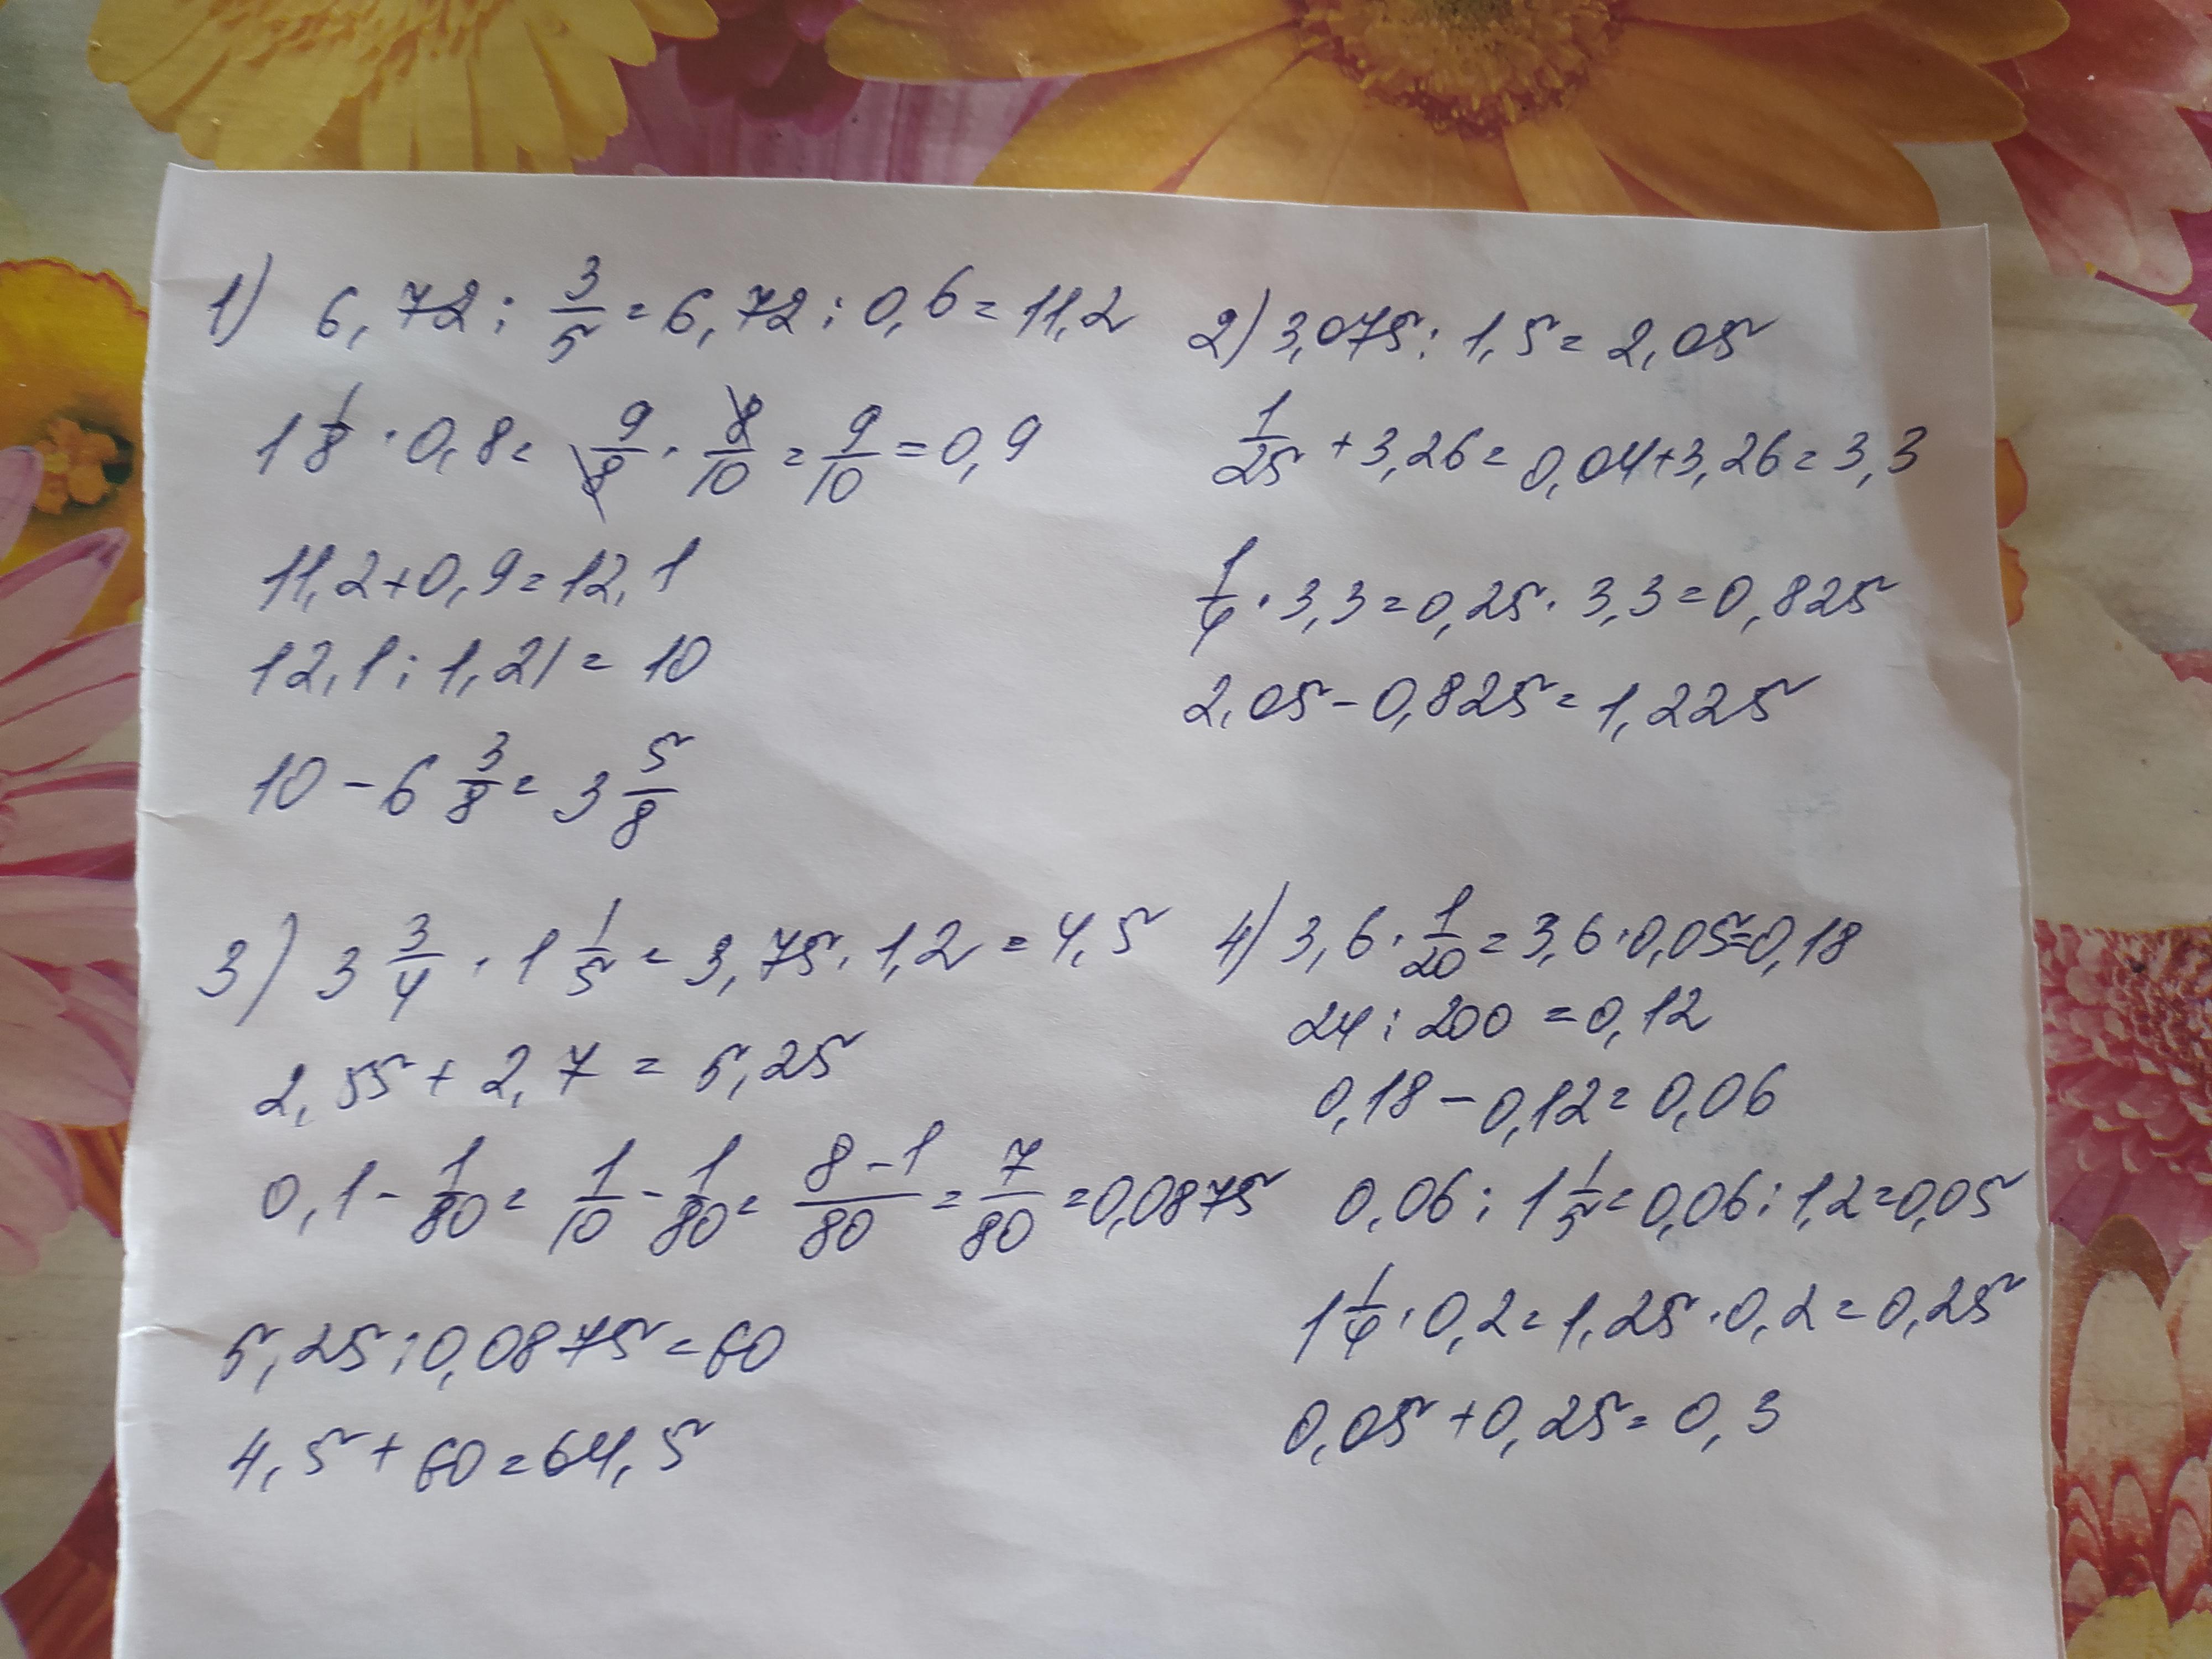 1) 6,72 : 3/5 = 6,72 : 0,6 = 11,2
1 1/8 · 0,8 = 9/8 · 8/10 = 9/10 = 0,9
11,2 + 0,9 = 12,1
12,1 : 1,21 = 10
10 - 6 3/8 = 3 5/8
2) 3,075 : 1,5 = 2,05
1/25 + 3,26 = 0,04 + 3,26 = 3,3
1/4 · 3,3 = 0,25 · 3,3 = 0,825
2,05 - 0,825 = 1,225
3) 3 3/4 · 1 1/5 = 3,75 · 1,2 = 4,5
2,55 + 2,7 = 5,25
0,1 - 1/80 = 1/10 - 1/80 = 8-1/80 = 7/80 = 0,0875
5,25 : 0,0875 = 60
4,5 + 60 = 64,5
4) 3,6 · 1/20 = 3,6 · 0,05 = 0,18
24 : 200 = 0,12
0,18 - 0,12 = 0,06
0,06 : 1 1/5 = 0,06 : 1,2 = 0,05
1 1/4 · 0,2 = 1,25 · 0,2 = 0,25
0,05 + 0,25 = 0,3